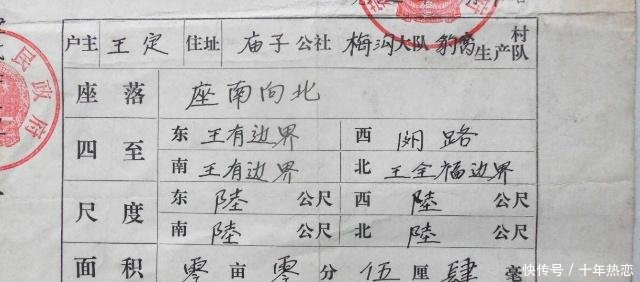 户主 王定 住址 庙子公社 梅沟大队 豹窝生产村队
座落 座南向北
四至 东 王有边界 西 阴路
南 王有边界 北 王全福边界
尺度 东 陸 公尺 西 陸 公尺
南 陸 公尺 北 陸 公尺
面积 零亩零分伍厘肆毫
民政府
快传号/十年热恋